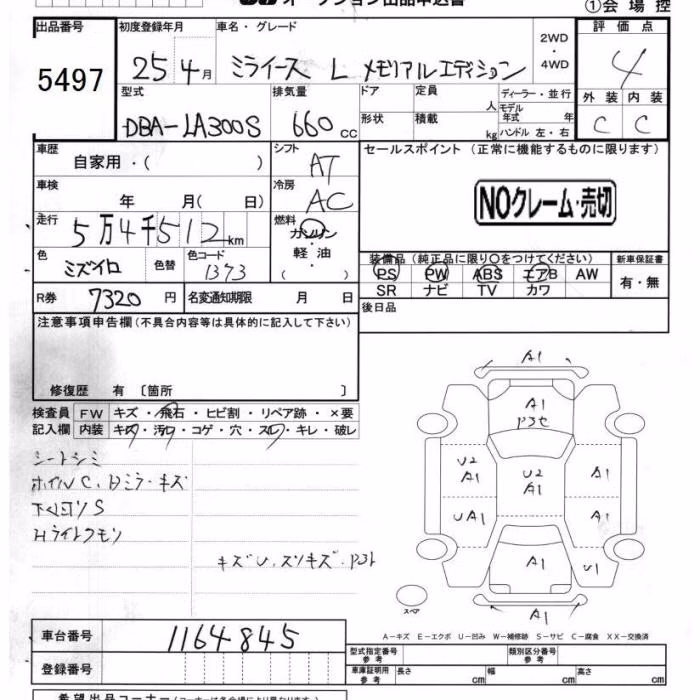 オークション出品申込書
①会場控
出品番号
5497
初度登録年月
25 4月
車名・グレード
ミライース L メモリアルエディション
2WD・4WD
評価点
4
外装 内装
C C
型式
DBA-LA300S
排気量
660 cc
ドア
形状
定員 人
積載 kg
ディーラー・並行
モデル年式 年
ハンドル 左・右
車歴
自家用・( )
シフト
AT
車検
年 月( 日)
冷房
AC
走行
5万4千512km
燃料
ガソリン
軽油
色
ミズイロ
色替
色コード
1373
R券
7320 円
名変通知期限 月 日
セールスポイント(正常に機能するものに限ります)
NOクレーム・売切
装備品(純正品に限り○をつけてください)
新車保証書
PS PW ABS エアB AW
SR ナビ TV カワ
有・無
後日品
注意事項申告欄(不具合内容等は具体的に記入して下さい)
修復歴 有〔箇所 〕
検査員記入欄
FW キズ・飛石・ヒビ割・リペア跡・×要
内装 キズ・汚レ・コゲ・穴・スレ・キレ・破レ
シートシミ
ホイルC、ドミラーキズ
下回リS
Hライトクモリ
キズU、スリキズ・
A1
A1
U2
A1
U2
A1
A1
UA1
A1
A1
U1
A1
スペア
A-キズ E-エクボ U-凹み W-補修跡 S-サビ C-腐食 XX-交換済
車台番号
1164845
登録番号
型式指定番号 参考
類別区分番号 参考
車庫証明用 参考
長さ cm
幅 cm
高さ cm
希望出品コーナー